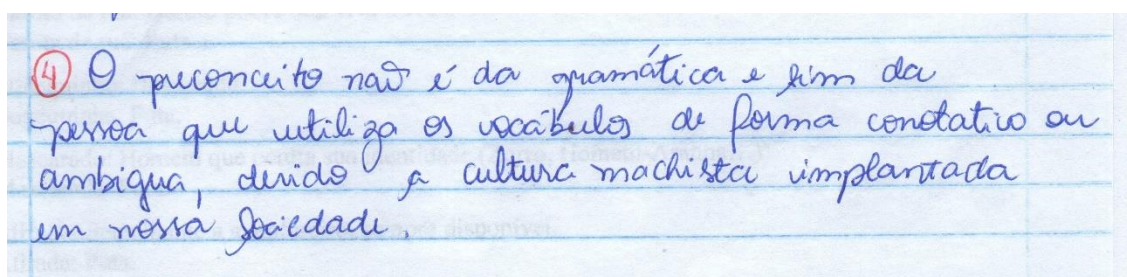 ④ O preconceito não é da gramática e sim da
pessoa que utiliza os vocábulos de forma conotativo ou
ambigua, devido a cultura machista implantada
em nossa sociedade.